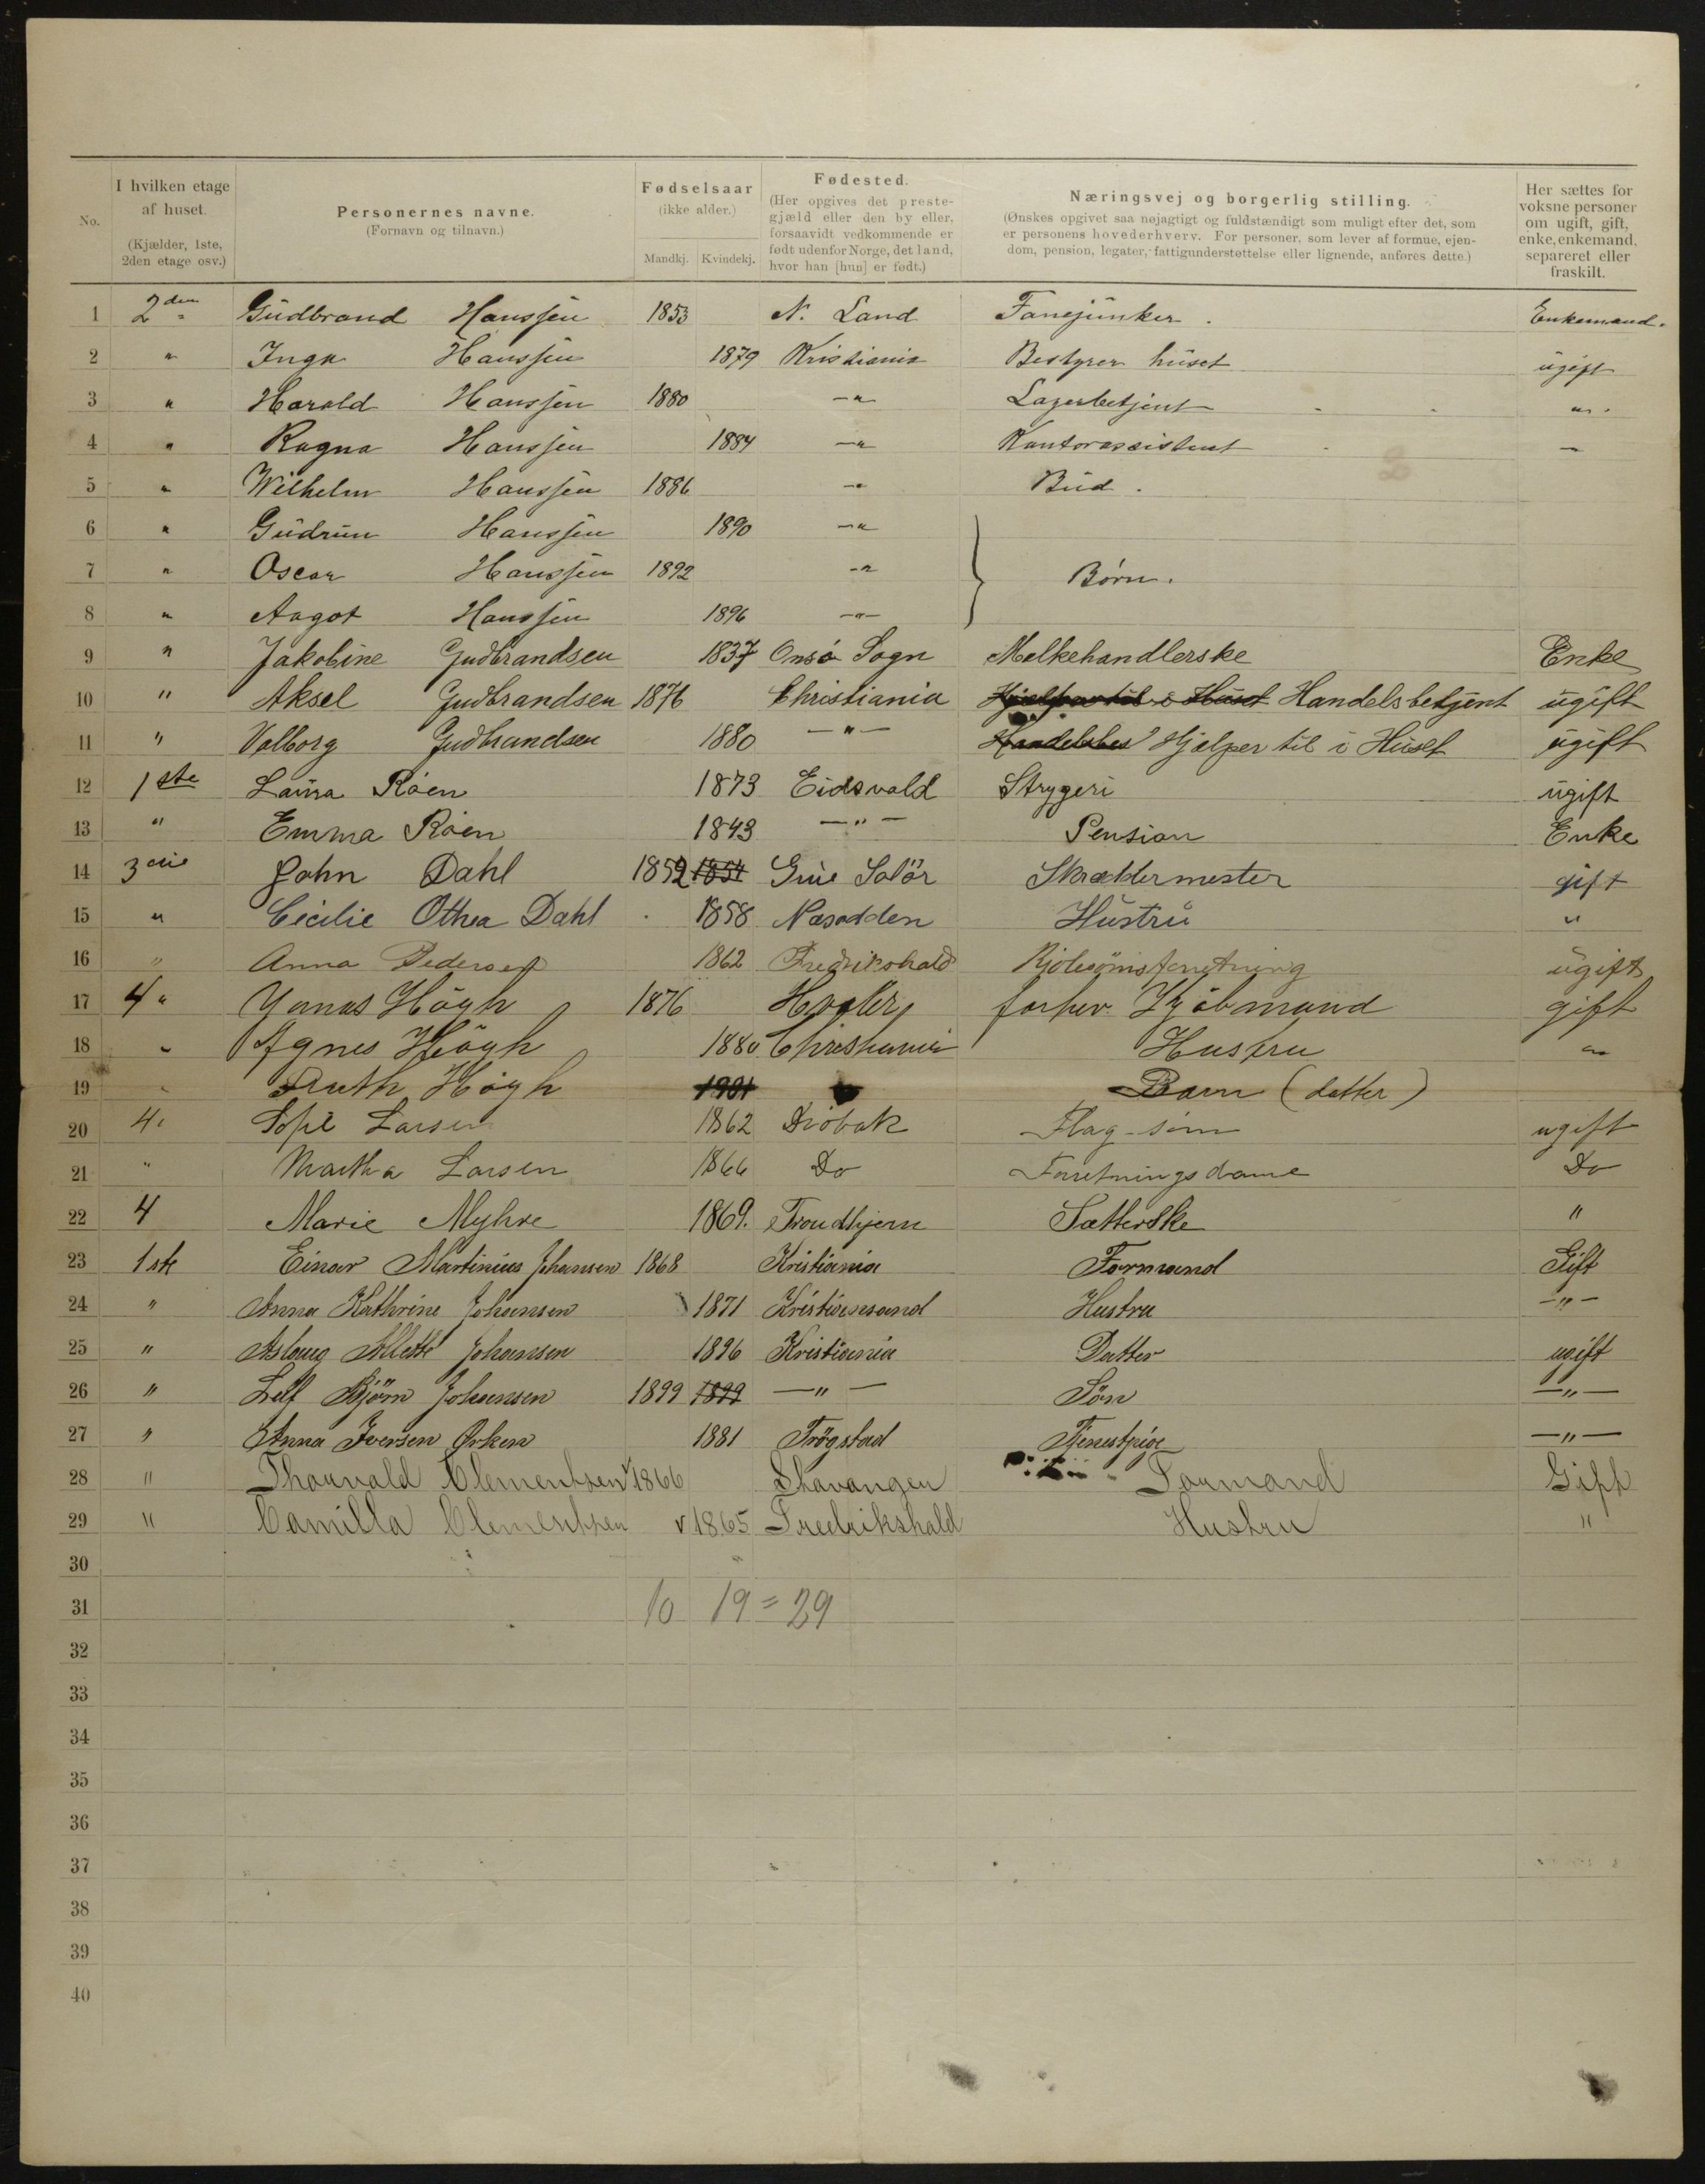 No. | I hvilken etage af huset. (Kjælder, 1ste, 2den etage osv.) | Personernes navne. (Fornavn og tilnavn.) | Fødselsaar (ikke alder.) Mandkj. Kvindekj. | Fødested. (Her opgives det prestegjæld eller den by eller, forsaavidt vedkommende er født udenfor Norge, det land, hvor han [hun] er født.) | Næringsvej og borgerlig stilling. (Ønskes opgivet saa nøjagtigt og fuldstændigt som muligt efter det, som er personens hovederhverv. For personer, som lever af formue, ejendom, pension, legater, fattigunderstøttelse eller lignende, anføres dette.) | Her sættes for voksne personer om ugift, gift, enke, enkemand, separeret eller fraskilt.
1 2den Gudbrand Hanssen 1853 N. Land Fanejunker. Enkemand.
2 " Inga Hanssen 1879 Kristiania Bestyrer huset ugift
3 " Harald Hanssen 1880 —"— Lagerbetjent "
4 " Ragna Hanssen 1884 —"— Kontorassistent —
5 " Wilhelm Hanssen 1886 —"— Bud.
6 " Gudrun Hanssen 1890 —"—
7 " Oscar Hanssen 1892 —"— } Børn.
8 " Aagot Hanssen 1896 —"—
9 " Jakobine Gudbrandsen 1837 Onsø Sogn Melkehandlerske Enke
10 " Aksel Gudbrandsen 1876 Christiania Hjælper til i Huset Handelsbetjent ugift
11 " Valborg Gudbrandsen 1880 —"— Handelsbet Hjælper til i Huset ugift
12 1ste Laura Röen 1873 Eidsvold Strygeri ugift
13 " Emma Röen 1843 —"— Pension Enke
14 3die John Dahl 1852 1854 Grue Solör Skræddermester gift
15 " Cecilie Othea Dahl 1858 Næsodden Hustru "
16 " Anna Pedersen 1862 Fredrikshald Kjolesömsforretning ugift
17 4 " Högh 1876 Hvaler forhv. Kjöbmand gift
18 " Agnes Högh 1880 Christiania Hustru "
19 " Ruth Högh 1901 Barn (datter)
20 4 " Sofie Larsen 1862 Dröbak Flag-söm ugift
21 " Martha Larsen 1866 Do Forretningsdame Do
22 4 Marie Myhre 1869. Trondhjem Sætterske "
23 1ste Einar Martinius Johansen 1868 Kristiania Formand Gift
24 " Anna Kathrine Johansen 1871 Kristianssand Hustru —"—
25 " Aslaug Johansen 1896 Kristiania Datter ugift
26 " Leif Bjørn Johansen 1899 1899 —"— Sön —"—
27 " Anna Iversen Ørken 1881 Trögstad Tjenestpige —"—
28 " Thorvald Clementsen 1866 Stavanger Formand Gift
29 " Camilla Clementsen 1865 Fredrikshald Hustru "
30
31 10 19 = 29
32
33
34
35
36
37
38
39
40